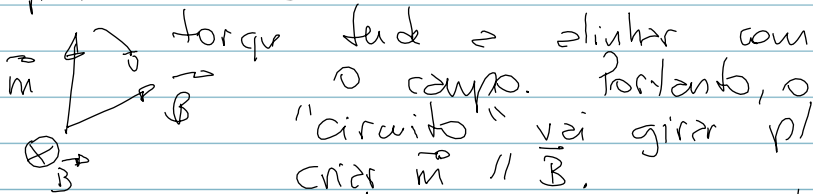 torque tende a alinhar com
m⃗ B⃗ o campo. Portanto, o
"circuito" vai girar p/
⊗ B⃗ criar m⃗ // B⃗.